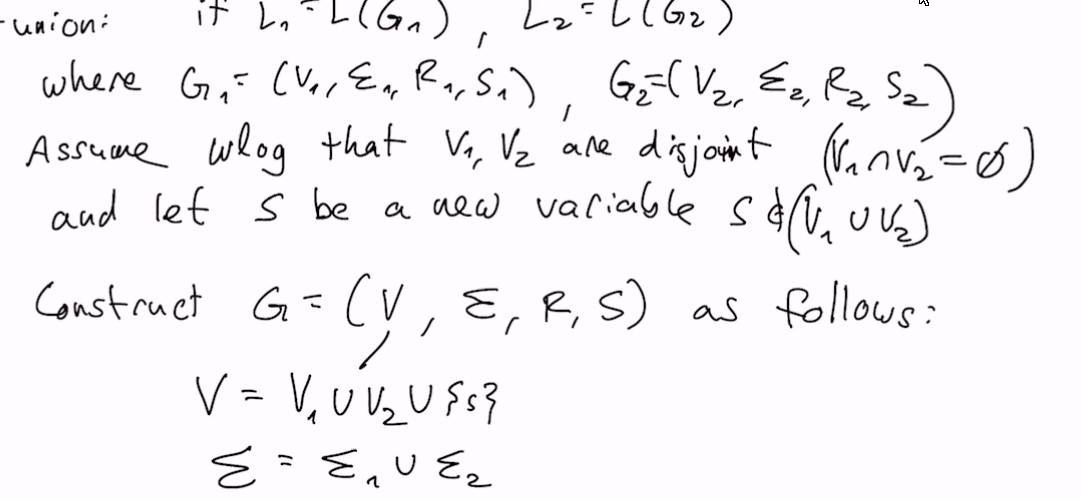 - union: if L₁ = L(G₁), L₂ = L(G₂)
where G₁ = (V₁, Σ₁, R₁, S₁), G₂ = (V₂, Σ₂, R₂, S₂)
Assume wlog that V₁, V₂ are disjoint (V₁ ∩ V₂ = ∅)
and let S be a new variable S ∉ (V₁ ∪ V₂)
Construct G = (V, Σ, R, S) as follows:
V = V₁ ∪ V₂ ∪ {S}
Σ = Σ₁ ∪ Σ₂